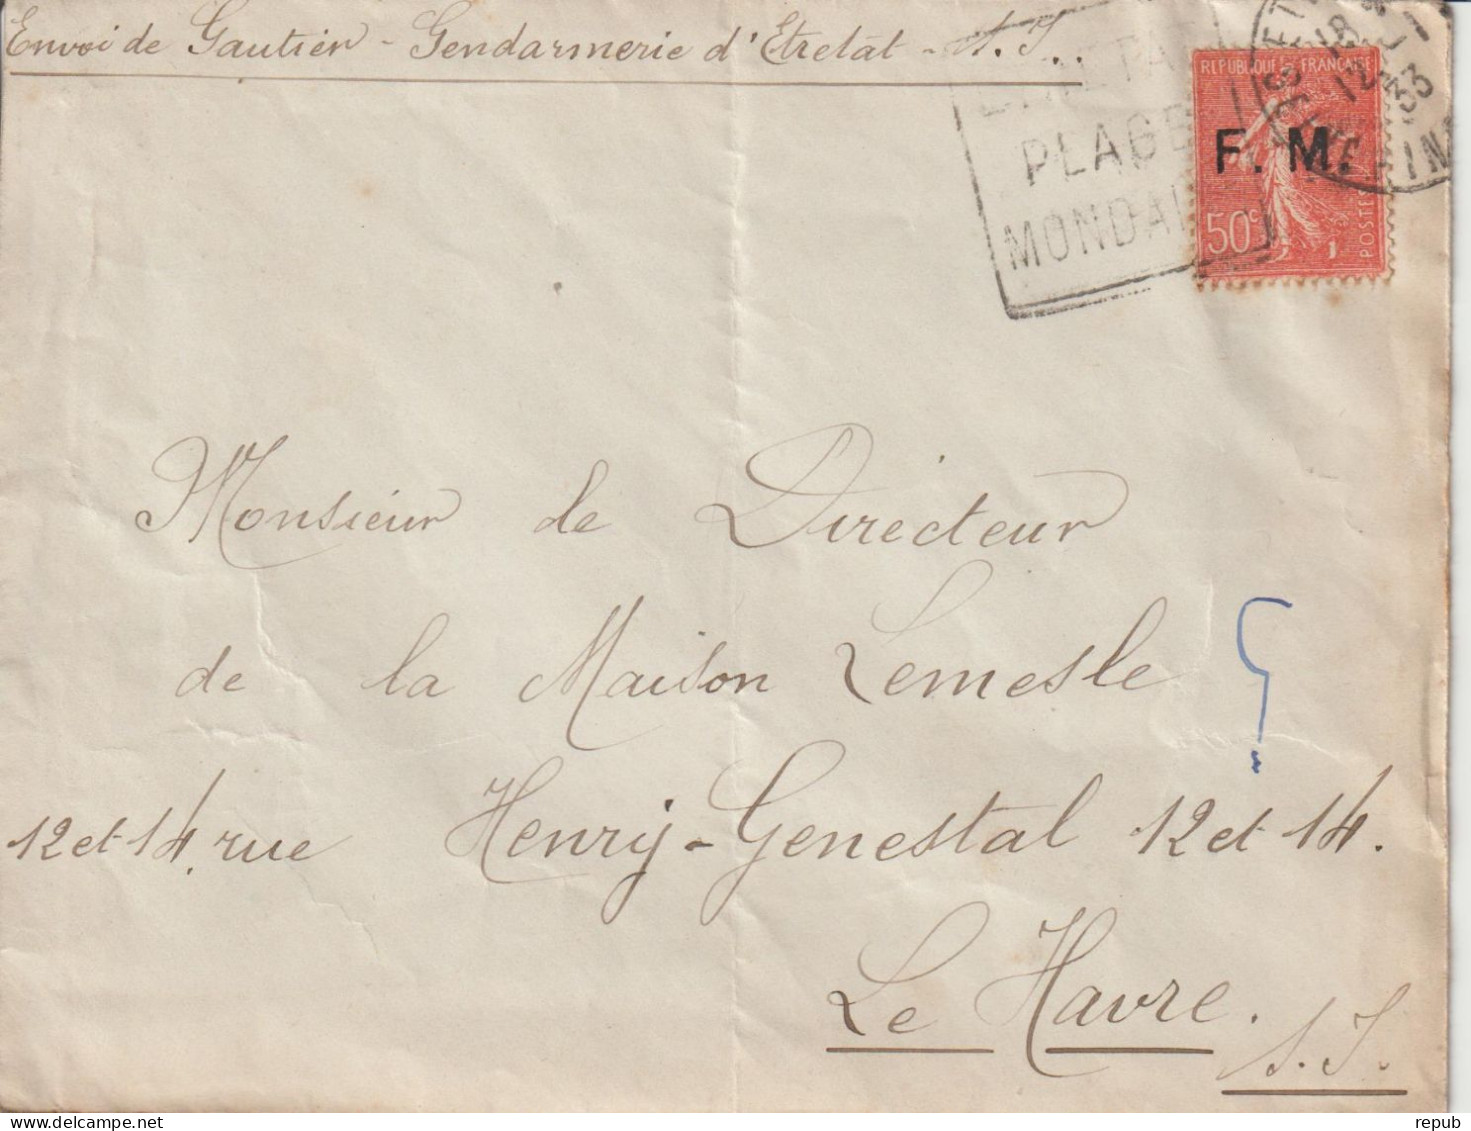 Envoi de Gautier - Gendarmerie d'Etretat - S. I..
ETRETAT
PLAGE
MONDAI
REPUBLIQUE FRANÇAISE
F. M.
50c
POSTES
18
12
33
Monsieur de Directeur
de la Maison Lemesle
12 et 14 rue Henry-Genestal 12 et 14.
Le Havre.
S. I.